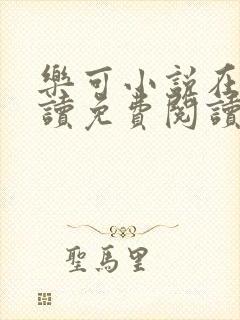 樂可小說在
讀免費閱讀
聖馬里